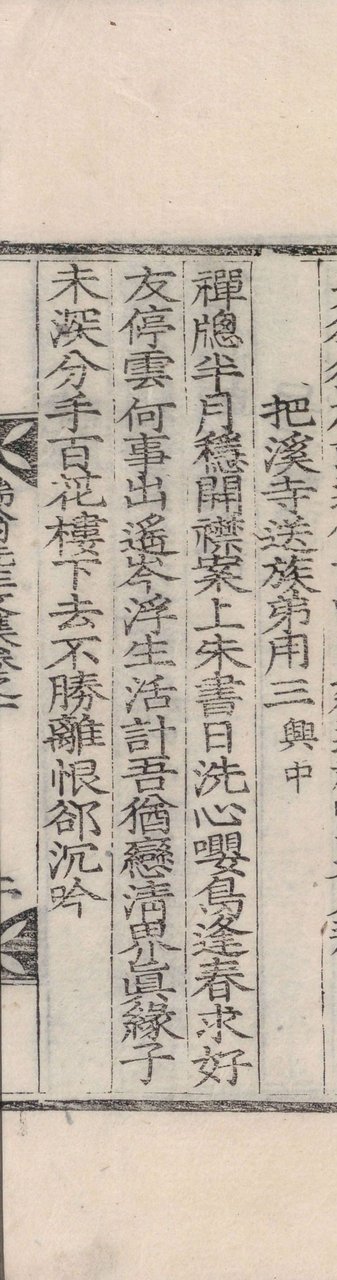 把溪寺送族弟用三 興中
禪牕半月穩開襟案上朱書日洗心嚶鳥逢春求好
友停雲何事出遙岑浮生活計吾猶戀淸界眞緣子
未深分手百花樓下去不勝離恨郤沉吟